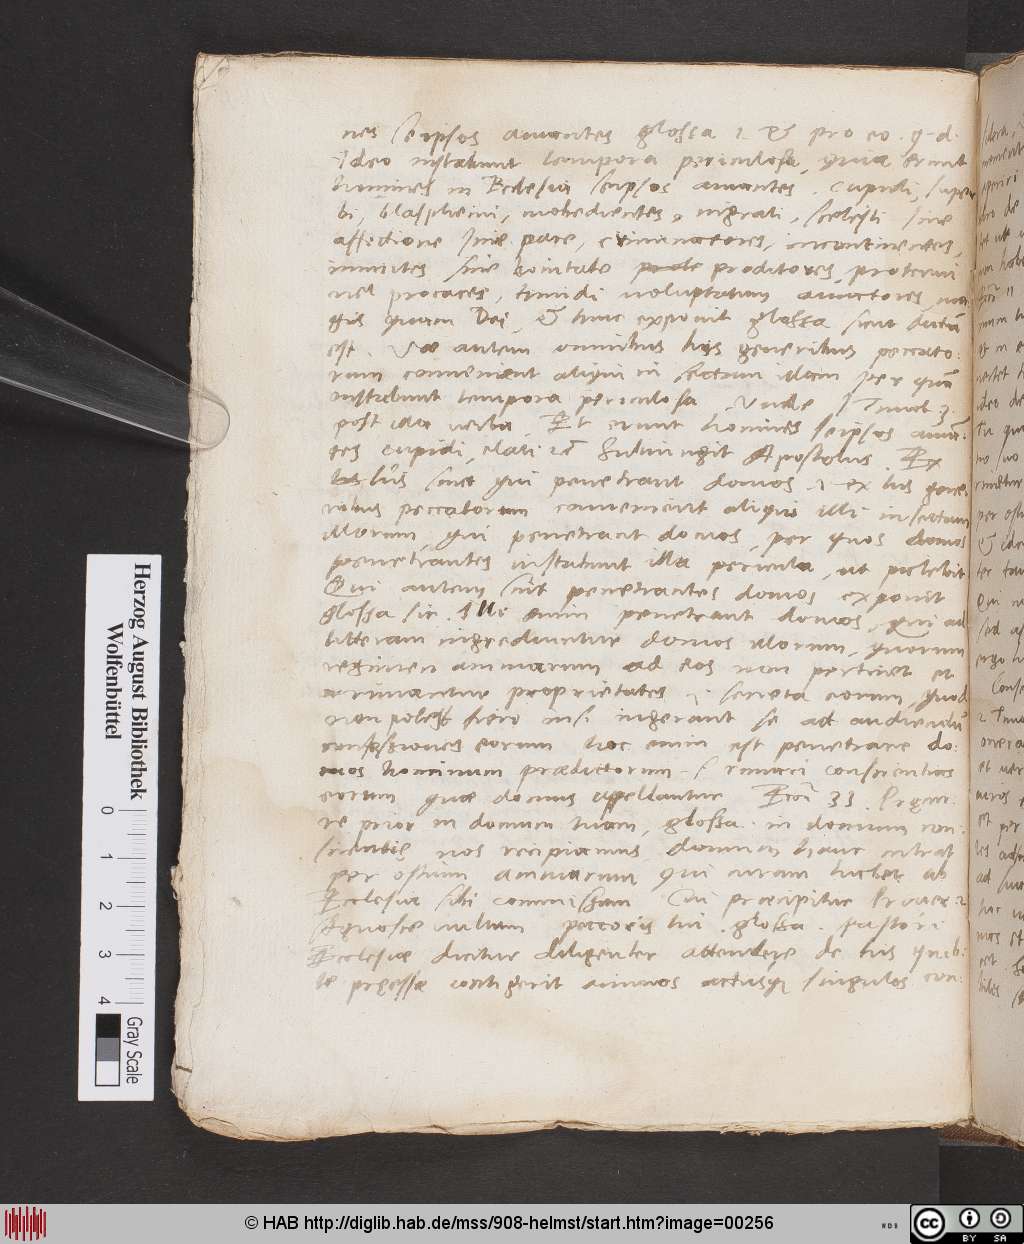 nes seipsos amantes glossa 1. Et pro eo. q. d.
Ideo instabunt tempora periculosa, quia erunt
homines in Ecclesia seipsos amantes. Cupidi, super
bi, blasphemi, inobedientes, ingrati, scelesti sine
affectione sine pace, criminatores, incontinentes,
immites sine bonitate proditores, protervi
vel procaces, tumidi voluptatum amatores, ma
gis quam Dei, Et hunc exponit glossa sicut dictū
est. Vae autem omnibus his generibus peccato:
rum convenient aliqui in sectam illam per quā
instabunt tempora periculosa. Unde Timot 3.
post illa verba Et erunt homines seipsos amā:
tes cupidi, elati Apostolus. Ex
his sunt qui penetrant domos. ex his gene
ribus peccatorum convenient aliqui illi in sectam
illorum, qui penetrant domos, per quos domos
penetrantes instabunt illa pericula, ut patebit
Qui autem sint penetrantes domos exponit
glossa sic. Illi enim penetrant domos, qui
ingrediuntur domos illorum, quorum
regimen animarum ad eos non pertinet et
rimantur proprietates .i. secreta eorum, quod
non potest fieri nisi ingerant se ad audiendū
confessiones eorum, hoc enim est penetrare do:
mos hominum praedictorum .s. rimari conscientias
eorum quae domus appellantur 33. Ingre
re prior in domum tuam, glossa. in domum con:
scientie, nos recipiamus, domum hanc intrat
per ostium animarum qui curam habet ab
Ecclesia sibi commissam Cui praecipitur Prover. 2
Agnosce vultum peccoris tui. glossa. Pastori
Ecclesiae dicitur diligenter attendere de his quib:
te pręesse contigerit animos actusq3 singulos con:
Herzog August Bibliothek
Wolfenbüttel
0 1 2 3 4
Gray Scale
© HAB http://diglib.hab.de/mss/908-helmst/start.htm?image=00256
WDB
cc BY SA